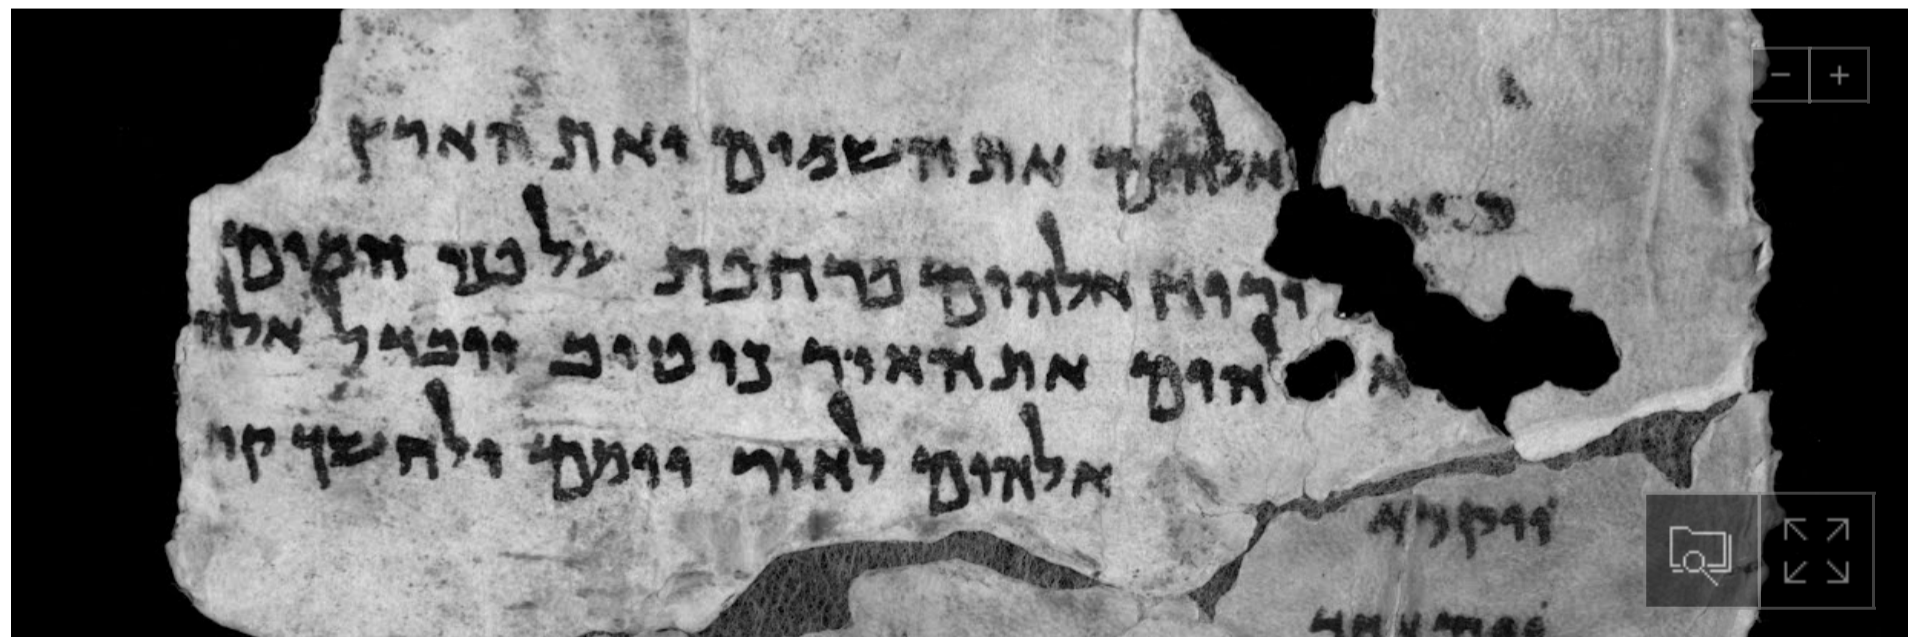 אלהים את השמים ואת הארץ
ורוח אלהים מרחפת על פני המים
אלהים את האור כי טוב ויבדל אלה
אלהים לאור יומם ולחשך קר
ויקרא